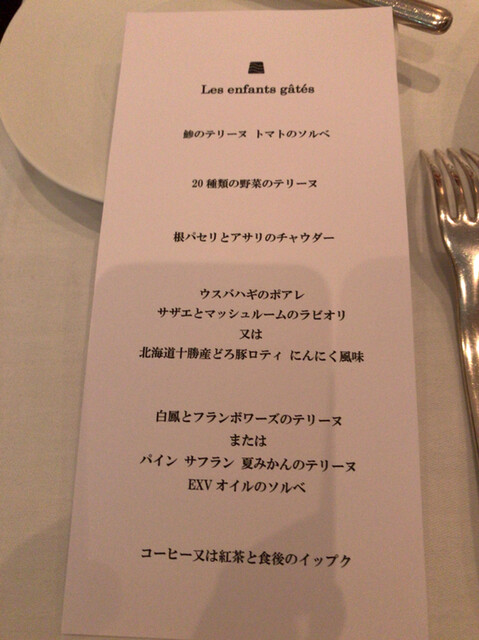 Les enfants gâtés
鯵のテリーヌ トマトのソルベ
20種類の野菜のテリーヌ
根パセリとアサリのチャウダー
ウスバハギのポアレ
サザエとマッシュルームのラビオリ
又は
北海道十勝産どろ豚ロティ にんにく風味
白鳳とフランボワーズのテリーヌ
または
パイン サフラン 夏みかんのテリーヌ
EXVオイルのソルベ
コーヒー又は紅茶と食後のイップク